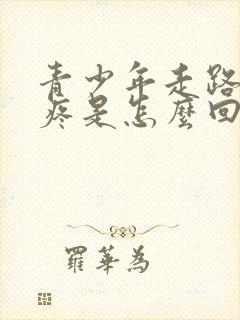 青少年走路
疼是怎麼回
羅華為